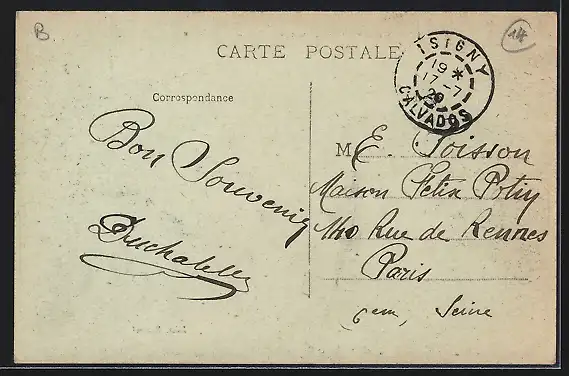 B
14
CARTE POSTALE
ISIGNY
19 *
17-7
20
CALVADOS
Correspondance
Bon Souvenir
Duchatelle
M E. Poisson
Maison Felix Potin
140 Rue de Rennes
Paris
6em, Seine